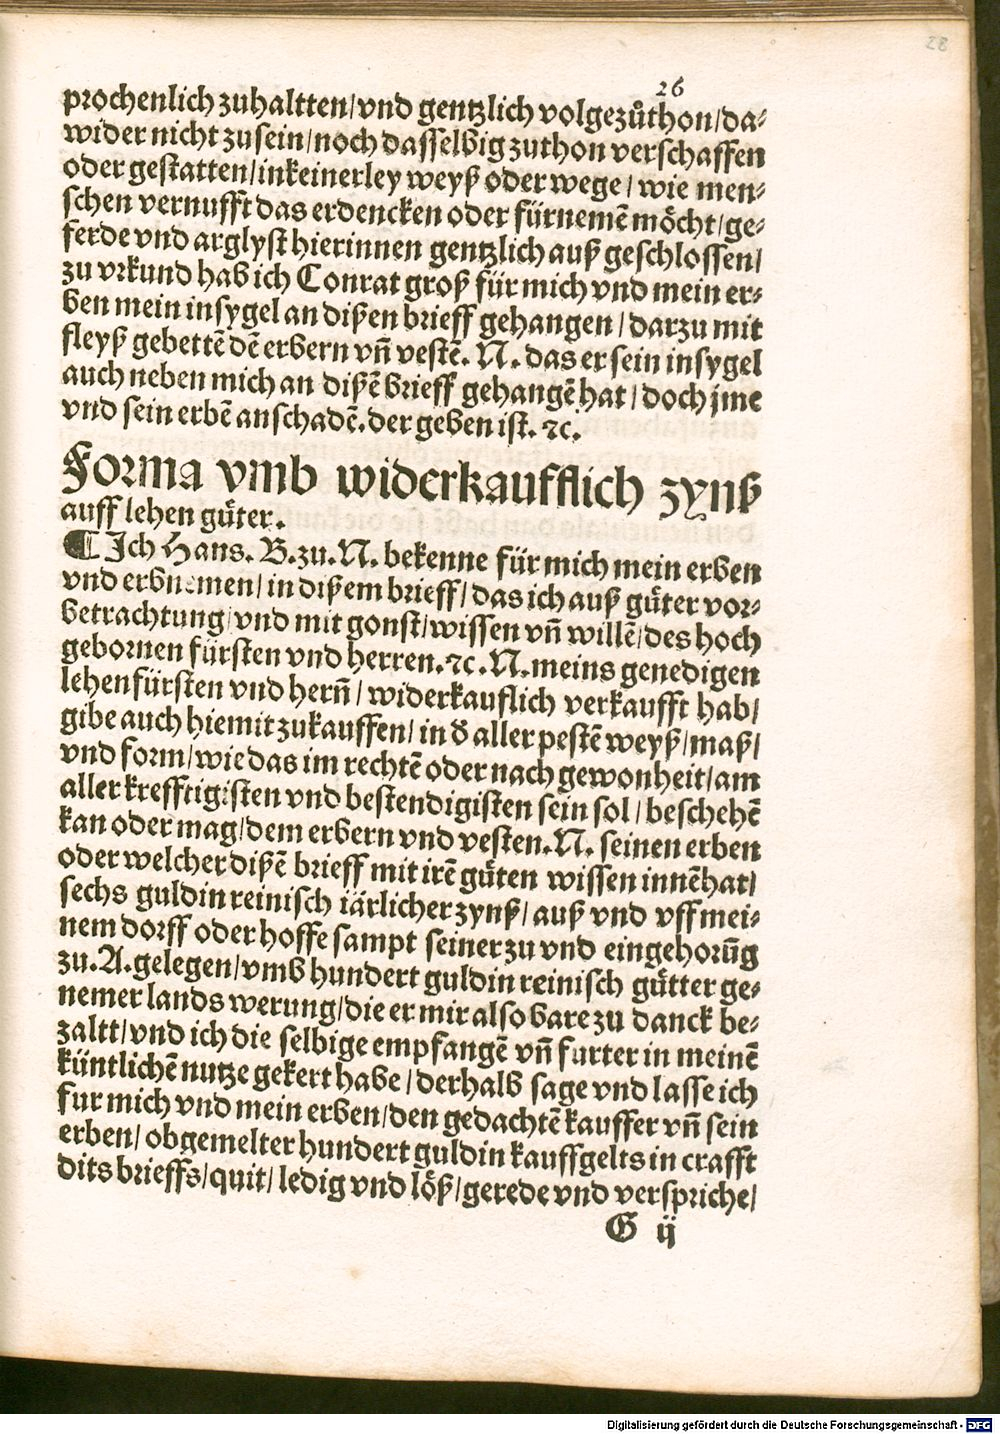 28
26
prochenlich zuhaltten/vnd gentzlich volgezůthon/da⸗
wider nicht zusein/noch dasselbig zuthon verschaffen
oder gestatten/inkeinerley weyß oder wege/ wie men⸗
schen vernufft das erdencken oder fürnemẽ möcht/ge⸗
ferde vnd arglyst hierinnen gentzlich auß geschlossen/
zu vrkund hab ich Conrat groß für mich vnd mein er⸗
ben mein insygel an dißen brieff gehangen/darzu mit
fleyß gebettẽ dẽ erbern vñ vestẽ. N. das er sein insygel
auch neben mich an dißẽ brieff gehangẽ hat/doch jme
vnd sein erbẽ an schadẽ.der geben ist. ⁊c.
Forma vmb widerkaufflich zynß
auff lehen gůter.
¶ Ich Hans. B. zu. N. bekenne für mich mein erben
vnd erbnemen/in dißem brieff/das ich auß gůter vor⸗
betrachtung/vnd mit gonst/wissen vñ willẽ/des hoch
gebornen fürsten vnd herren.⁊c.N.meins genedigen
lehenfürsten vnd herñ/widerkauflich verkaufft hab/
gibe auch hiemit zukauffen/in ď aller pestẽ weyß/maß/
vnd form/wie das im rechtẽ oder nach gewonheit/am
aller krefftigisten vnd bestendigisten sein sol/beschehẽ
kan oder mag/dem erbern vnd vesten.N. seinen erben
oder welcher dißẽ brieff mit irẽ gůten wissen innẽhat/
sechs guldin reinisch iärlicher zynß/auß vnd vff mei⸗
nem dorff oder hoffe sampt seiner zu vnd eingehorũg
zu.A.gelegen/vmb hundert guldin reinisch gůtter ge⸗
nemer lands werung/die er mir also bare zu danck be⸗
zaltt/vnd ich die selbige empfangẽ vñ furter in meinẽ
küntlichẽ nutze gekert habe/derhalb sage vnd lasse ich
fur mich vnd mein erben/den gedachtẽ kauffer vñ sein
erben/obgemelter hundert guldin kauffgelts in crafft
dits brieffs/quit/ledig vnd löß/gerede vnd verspriche/
G ij
Digitalisierung gefördert durch die Deutsche Forschungsgemeinschaft - DFG